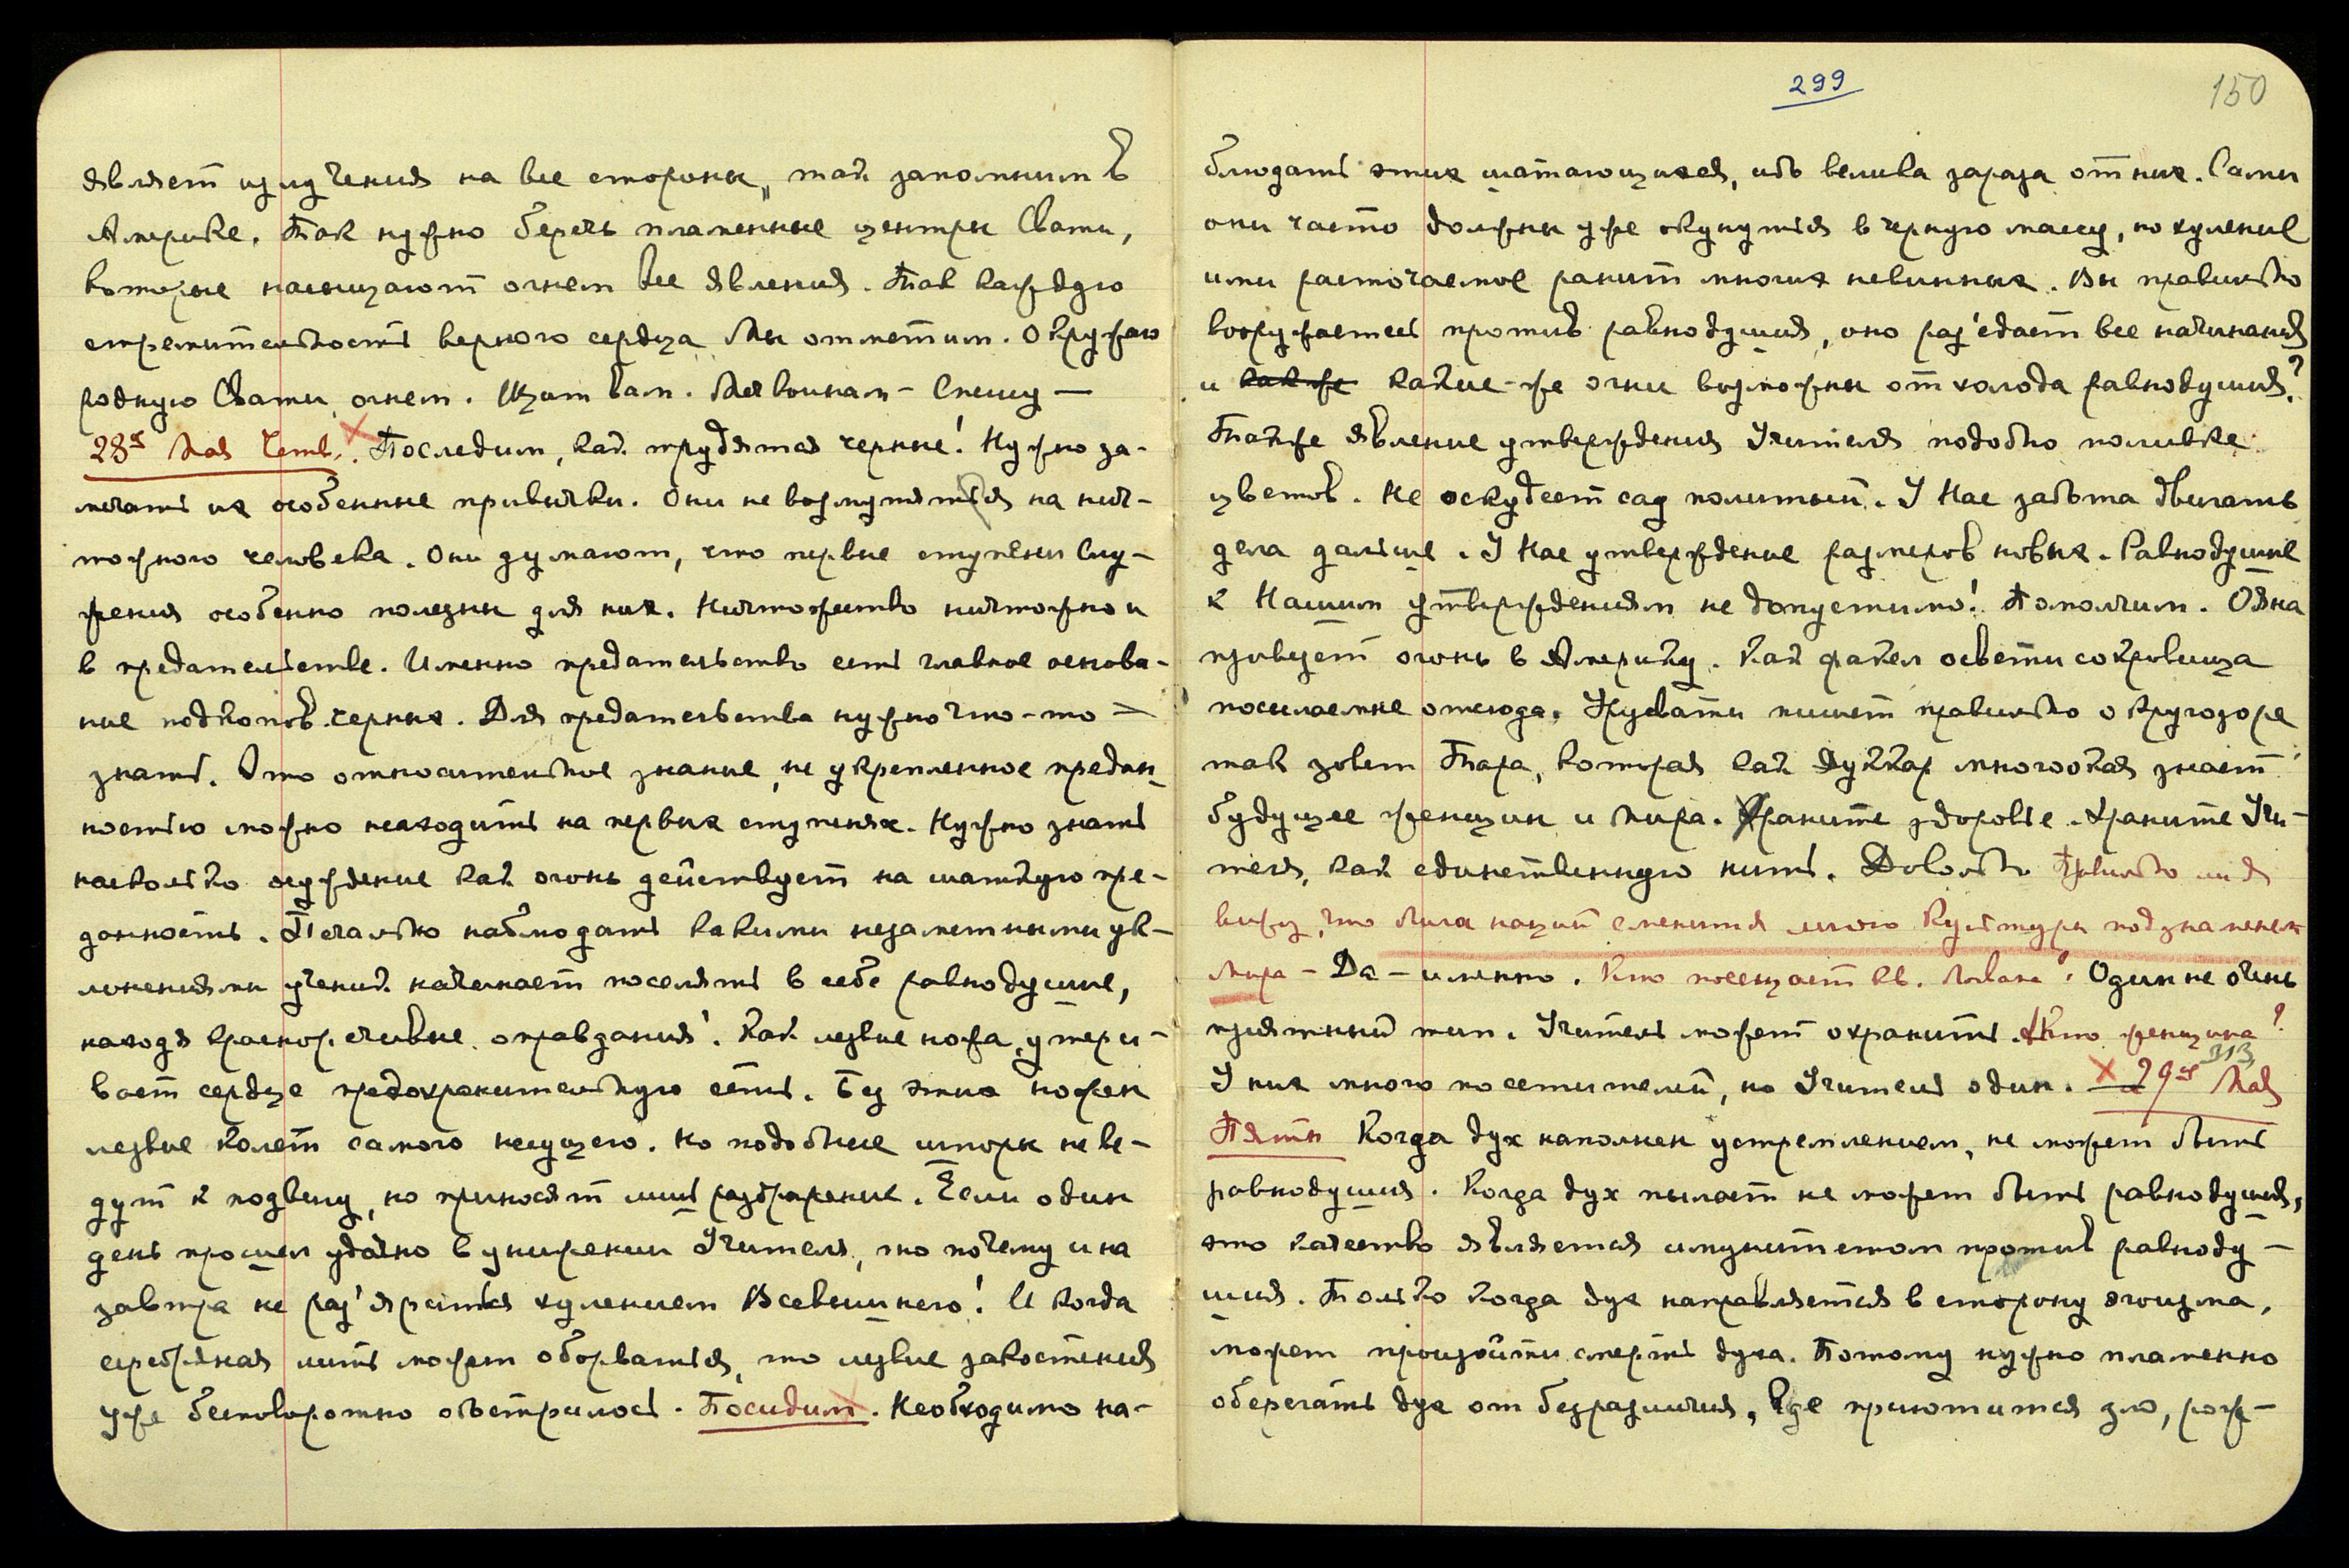 являет излучения на все стороны, так запомним в
Америке. Так нужно беречь пламенные центры Свати,
которые насыщают огнем все явления. Так каждую
стремительность верного сердца Мы отметим. Окружаю
родную Свати огнем. Щит вам. Мая воинам – Спешу —
28го Мая Четв. Последим, как трудятся черные! Нужно за-
мечать их особенные привычки. Они не возмутятся на нич-
тожного человека. Они думают, что первые ступени Слу-
жения особенно полезны для них. Ничтожество ничтожно и
в предательстве. Именно предательство есть главное основа-
ние подкопов черных. Для предательства нужно что-то =
знать. Это относительное знание, не укрепленное предан
ностью можно находить на первых ступенях. Нужно знать
насколько осуждение как огонь действует на шаткую пре-
данность. Печально наблюдать какими незаметными ук-
лонениями ученик начинает поселять в себе равнодушие,
находя красноречивые оправдания! Как лезвие ножа, утери-
вает сердце предохранительную сеть. Без этих ножен
лезвие колет самого несущего. Но подобные шпоры не ве-
дут к подвигу, но приносят лишь раздражение. Если один
день прошел удачно в унижении Учителя, то почему и на
завтра не раз'яриться хулением Всевышнего! И когда
серебряная нить может оборваться, то лезвие закостения
уже бесповоротно обострилось. Посидим. Необходимо на-
299
150
блюдать этих шатающихся, ибо велика зараза от них. Сами
они часто должны уже окунуться в черную массу, но хуление
ими расточаемое ранит многих невинных. Вы правильно
вооружаетесь против равнодушия, оно раз'едает все начинания
и также какие-же огни возможны от холода равнодушия?
Также явление утверждения Учителя подобно поливке
цветов. Не оскудеет сад политый. У Нас забота двигать
дела дальше. У Нас утверждение размеров новых. Равнодушие
к Нашим утверждениям не допустимо! Помолчим. Ояна
призовет огонь в Америку. Как факел освети сокровища
посылаемые отсюда. Урусвати пишет правильно о кругозоре
так зовет Тара, которая как Дуккар многоокая знает
будущее женщин и Мира. Храните здоровье. Храните Учи-
теля, как единственную нить. Довольно Правильно ли я
вижу, что Лига наций сменится лигою Культуры под знаменем
Мира – Да – именно. Кто посещает кв. Ловака? Один не очень
приятный тип. Учитель может охранить. Кто женщина?
У них много посетителей, но Учитель один. 29го Мая
313
Пятн Когда дух наполнен устремлением, не может быть
равнодушия. Когда дух пылает не может быть равнодушия,
это качество является имунитетом против равноду-
шия. Только когда дух направляется в сторону эгоизма,
может произойти смерть духа. Потому нужно пламенно
оберегать дух от безразличия, где приютится зло, рож-